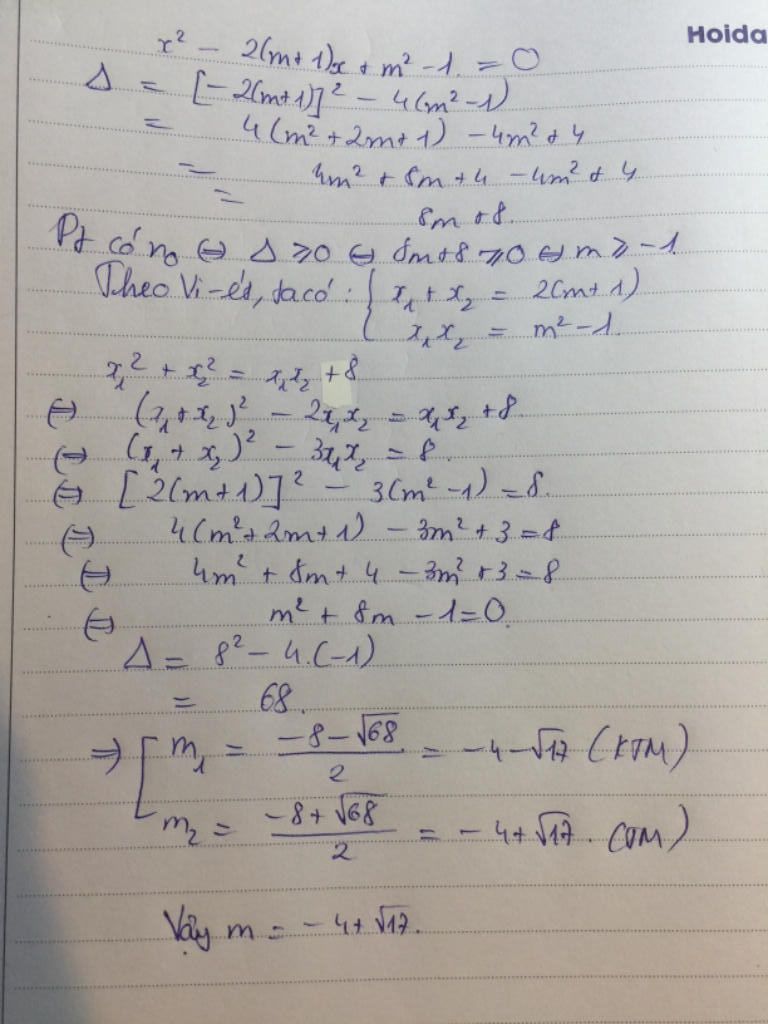 Hoida
x² - 2(m+1)x + m² - 1 = 0
Δ = [-2(m+1)]² - 4(m² - 1)
= 4(m² + 2m + 1) - 4m² + 4
= 4m² + 8m + 4 - 4m² + 4
= 8m + 8.
Pt có n₀ ⇔ Δ ⩾ 0 ⇔ 8m + 8 ⩾ 0 ⇔ m ⩾ -1
Theo Vi-ét, ta có: { x₁ + x₂ = 2(m+1)
x₁x₂ = m² - 1.
x₁² + x₂² = x₁x₂ + 8
⇔ (x₁ + x₂)² - 2x₁x₂ = x₁x₂ + 8.
⇔ (x₁ + x₂)² - 3x₁x₂ = 8.
⇔ [2(m+1)]² - 3(m² - 1) = 8.
⇔ 4(m² + 2m + 1) - 3m² + 3 = 8
⇔ 4m² + 8m + 4 - 3m² + 3 = 8
⇔ m² + 8m - 1 = 0.
Δ = 8² - 4.(-1)
= 68.
⇒ [ m₁ = (-8 - √68)/2 = -4 - √17 (KTM)
m₂ = (-8 + √68)/2 = -4 + √17. (TM)
Vậy m = -4 + √17.